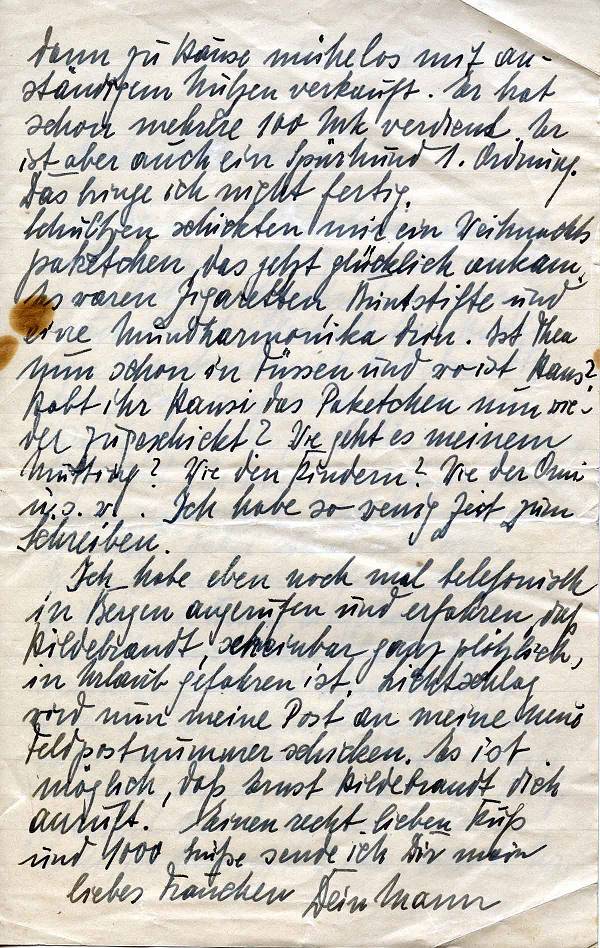 dann zu Hause mühelos mit an-
ständigem Nutzen verkauft. Er hat
schon mehrere 100 Mk verdient. Er
ist aber auch ein Spürhund 1. Ordnung.
Das bringe ich night fertig.
Schultzen schickten mir ein Weihnachts
paketchen, das jetzt glücklich ankam.
Es waren Zigaretten, Buntstifte und
eine Mundharmonika drin. Ist Thea
nun schon in Füssen und wo ist Hans?
Habt ihr Hansi das Paketchen nun wie-
der zugeschickt? Wie geht es meinem
Mutting? Wie den Kindern? Wie der Omi
u.s.w. Ich habe so wenig Zeit zum
Schreiben.
Ich habe eben noch mal telefonisch
in Bergen angerufen und erfahren, daß
Hildebrandt, scheinbar ganz plötzlich,
in Urlaub gefahren ist. Lichtschlag
wird nun meine Post an meine neue
Feldpostnummer schicken. Es ist
möglich, daß Ernst Hildebrandt dich
anruft. Einen recht lieben Kuß
und 1000 Grüße sende ich Dir mein
liebes Frauchen Dein Mann